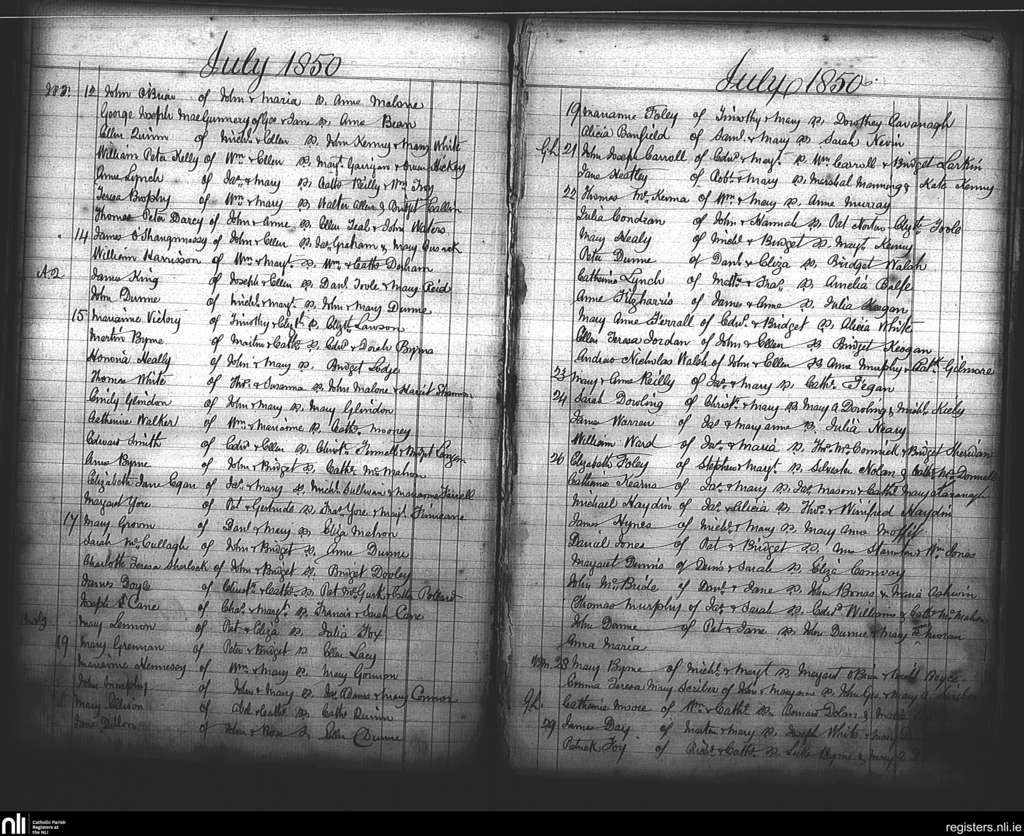 July 1850
12 John O'Brien of John & Maria Sp. Anne Malone
George Joseph MacGunnery of Geo & Jane Sp. Anne Bean
Ellen Quinn of Michl & Ellen Sp. John Kenny & Mary White
William Peter Kelly of Wm & Ellen Sp. Margt Garrigan & Owen Hickey
Anne Lynch of Jas & Mary Sp. Cathe Reilly & Wm Troy
Teresa Brophy of Wm & Mary Sp. Walter Allen & Bridget Callin
Thomas Peter Darcy of John & Anne Sp. Ellen Teal & John Waters
14 James O'Shaugnnessy of John & Ellen Sp. Jas Graham & Mary Cusack
William Harrison of Wm & Margt Sp. Wm & Cathe Derham
James King of Joseph & Ellen Sp. Danl Toole & Mary Reid
John Dunne of Michl & Margt Sp. John & Mary Dunne
15 Marianne Victory of Timothy & Elizth Sp. Elizth Lawson
Martin Byrne of Martin & Cathe Sp. Edwd & Sarah Byrne
Honoria Heally of John & Mary Sp. Bridget Lodge
Thomas White of Thos & Susanna Sp. John Malone & Harriet
Emily Glindon of John & Mary Sp. Mary Glindon
Catherine Walker of Wm & Marianne Sp. Cathe Mooney
Edward Smith of Edwd & Ellen Sp. Christr Finnell & Bridget
Anne Byrne of John & Bridget Sp. Cathe McMahon
Elizabeth Jane Egan of Jas & Mary Sp. Michl Sullivan & Marianne Farrell
Margaret Yore of Pat & Gertrude Sp. Fras Yore & Margt Finneane
17 Mary Groom of Danl & Mary Sp. Eliza Mahon
Sarah McCullagh of John & Bridget Sp. Anne Dunne
Charlotte Teresa Sherlock of John & Bridget Sp. Bridget Dooley
James Doyle of Christr & Cathe Sp. Pat McGurk & Cathe Pollard
Joseph S. Cane of Chas & Margt Sp. Francis & Sarah Cane
Mary Lennon of Pat & Eliza Sp. Julia Fox
19 Mary Grennan of Peter & Bridget Sp. Ellen Lacy
Marianne Hennesey of Wm & Mary Sp. Mary Gorman
John Murphy of John & Mary Sp. Jas Dunne & Mary Connor
Mary Ellison of Abd & Cathe Sp. Cathe Quinn
Jane Dillon of John & Rose Sp. Ellen Dunne
July 1850
19 Marianne Foley of Timothy & Mary Sp. Dorothey Cavanagh
Alicia Bonfield of Saml & Mary Sp. Sarah Nevin
G.L. 21 John Joseph Carroll of Edwd & Margt Sp. Wm Carroll & Bridget Larkin
Jane Heatley of Robt & Mary Sp. Marshal Manning & Kate Kenny
22 Thomas McKenna of Wm & Mary Sp. Anne Murray
Julia Condran of John & Hannah Sp. Pat Norton Elizth Toole
Mary Healy of Michl & Bridget Sp. Margt Kenny
Peter Dunne of Danl & Eliza Sp. Bridget Walsh
Catherine Lynch of Matth & Fras Sp. Amelia Balfe
Anne Fitzharris of James & Anne Sp. Julia Keegan
Mary Anne Ferrall of Edwd & Bridget Sp. Alicia White
Ellen Teresa Jordan of John & Ellen Sp. Bridget Keogan
Andrew Nicholas Walsh of John & Ellen Sp. Anne Murphy & Patk Gilmore
23 Mary & Anne Reilly of Jas & Mary Sp. Cathe Fegan
24 Sarah Dowling of Christr & Mary Sp. Mary A Dowling & Michl Kiely
James Warren of Jas & Maryanne Sp. Julia Neary
William Ward of Jas & Maria Sp. Thos McCormick & Bridget Sheridan
26 Elizabeth Foley of Stephen & Margt Sp. Silvester Nolan & Cathe McDonnell
Catherine Kearns of Jas & Mary Sp. Jas Mason & Cathe Mary Kavanagh
Michael Haydin of Jas & Alicia Sp. Thos & Winifred Haydin
James Hynes of Michl & Mary Sp. Mary Anne Moffit
Daniel Jones of Pat & Bridget Sp. Wm Jones
Margaret Dennis of Denis & Sarah Sp. Eliza Conway
John McBride of Danl & Jane Sp. Maria Ashwin
Thomas Murphy of Jas & Sarah Sp. Edwd Williams & Cathe McMahon
John Dunne of Pat & Jane Sp. John Dunne & Mary Moran
Anna Maria
28 Mary Byrne of Michl & Margt Sp. Margaret O'Brien
Emma Teresa Mary of John & Maryanne Sp. John Geo & Mary A
G.L. Catherine Moore of Wm & Cathe Sp. Bernard Dolan & Maria
29 James Day of Martin & Mary Sp. Joseph White & Mary
Patrick Foy of Richd & Cathe Sp. Luke Byrne & Mary
nli Catholic Parish
Registers at
the NLI
registers.nli.ie